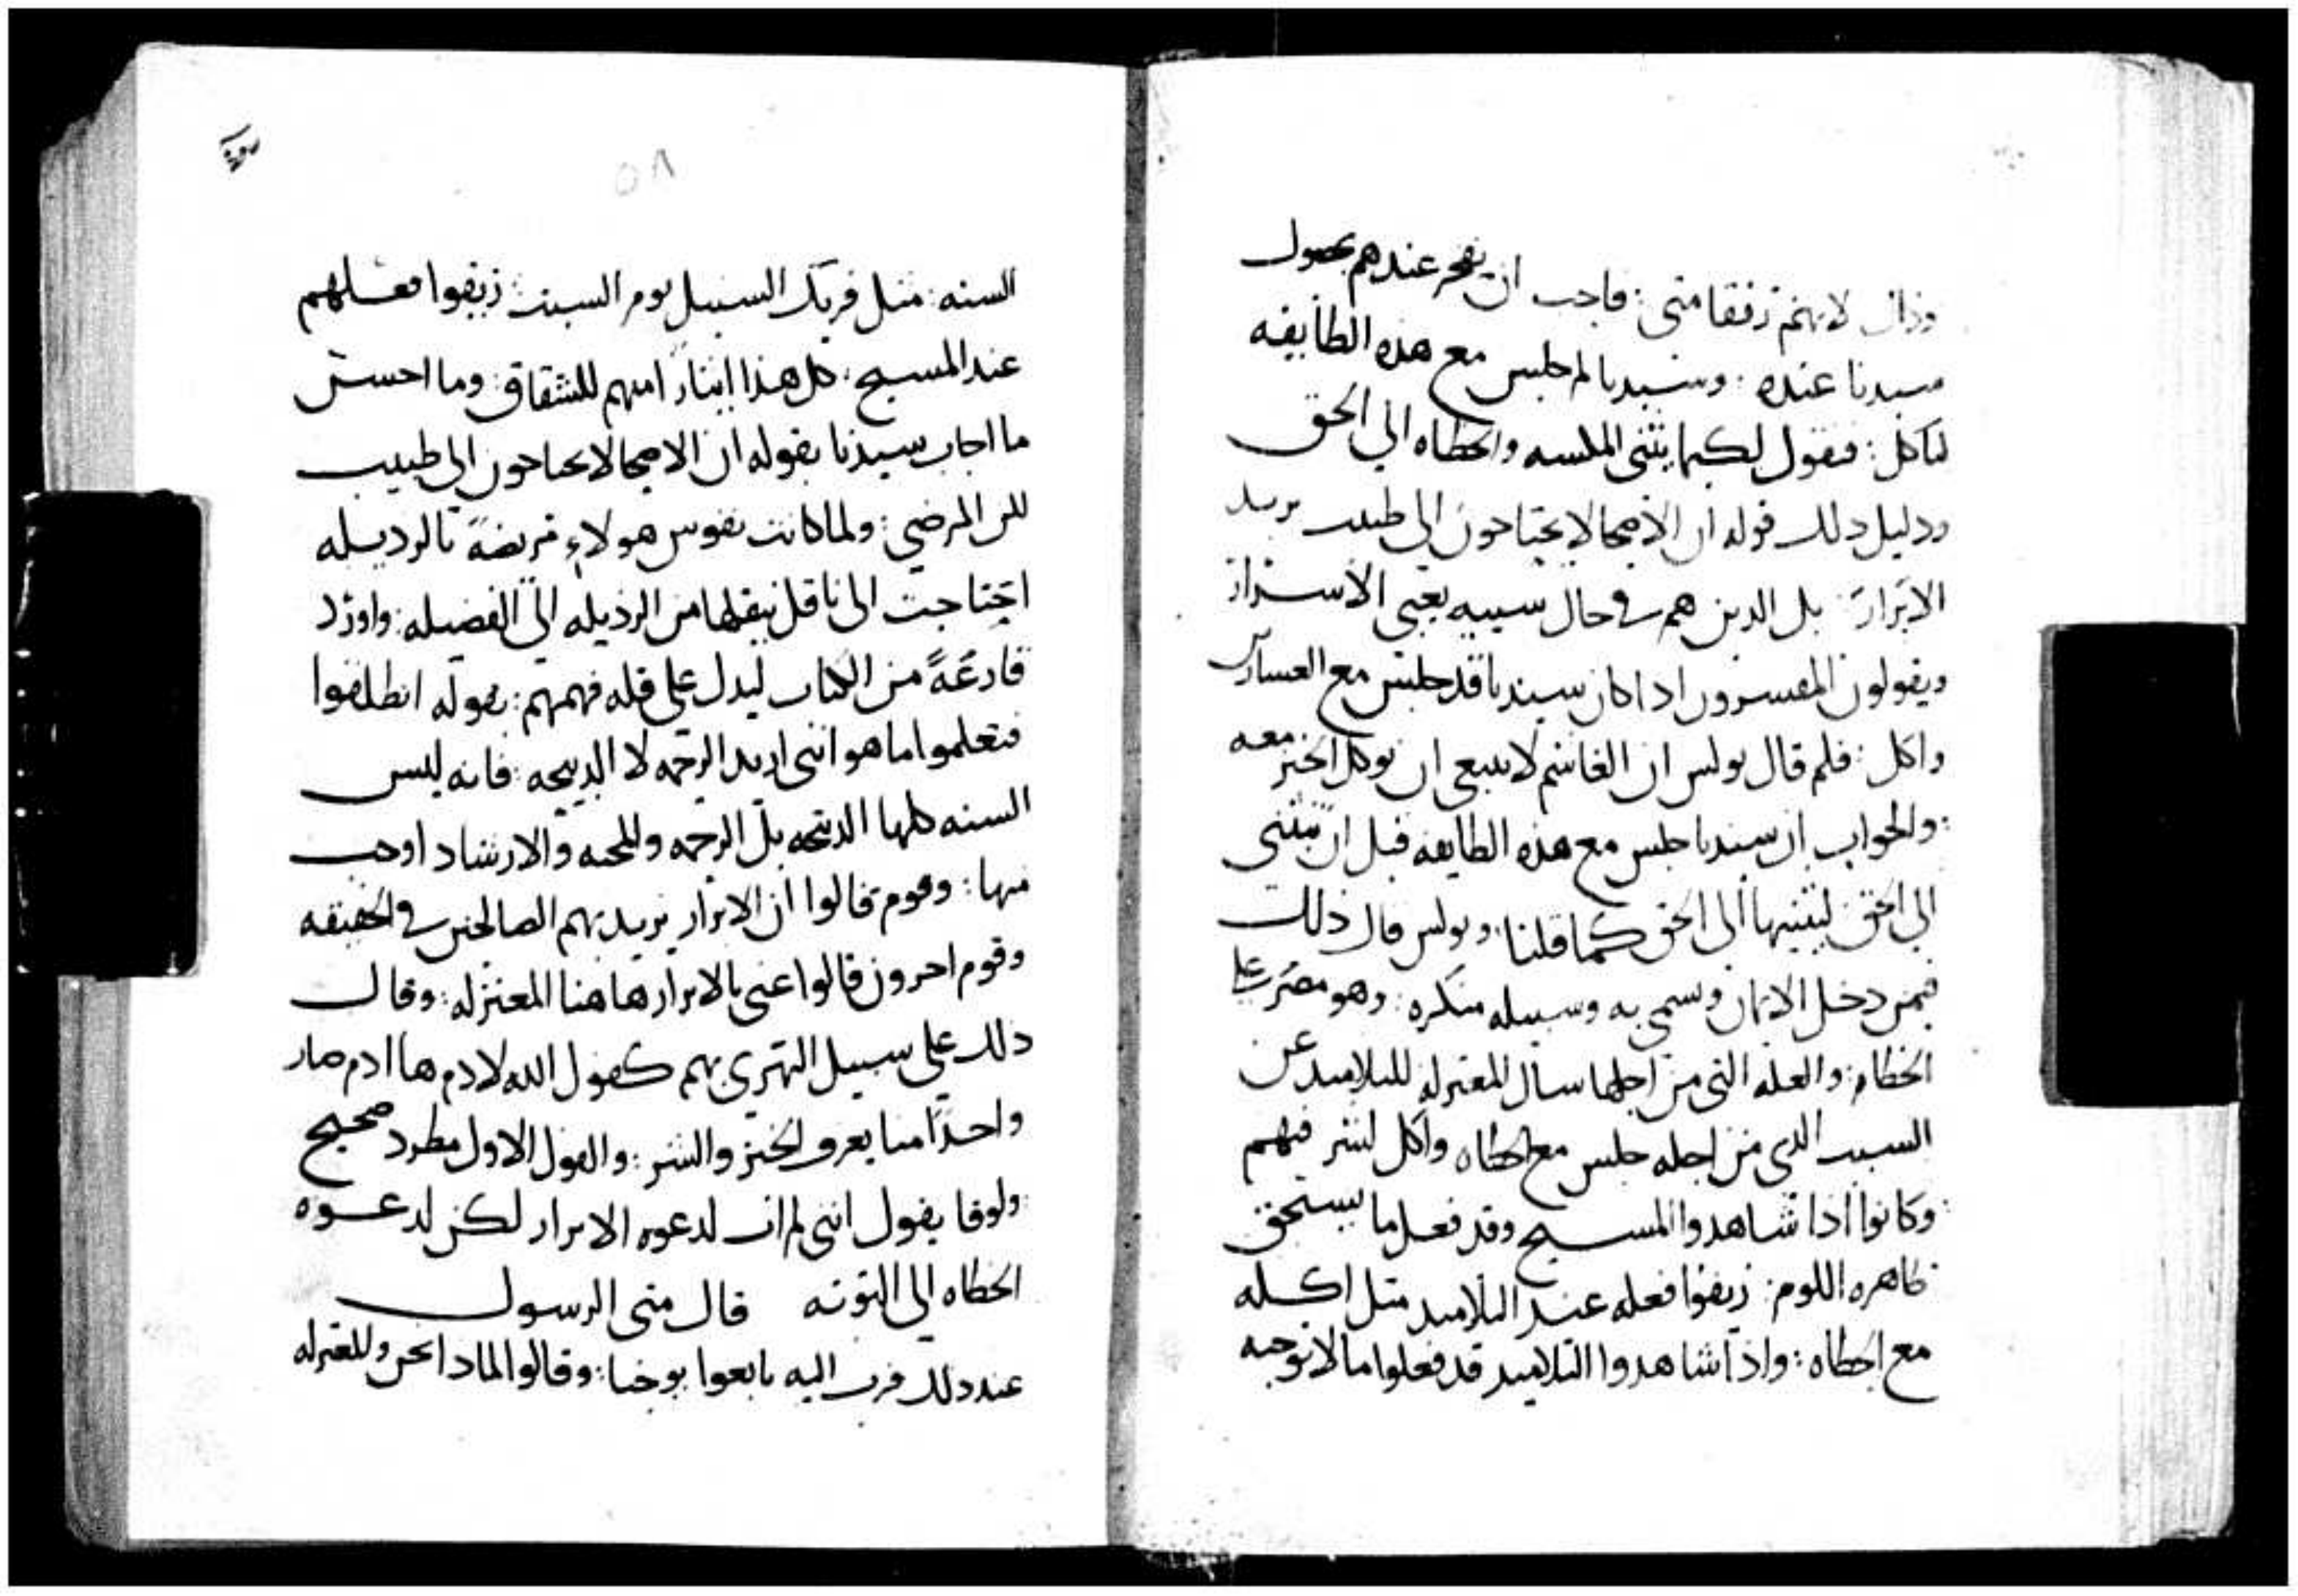 وذاك لانهم رفقا متى : فاحب ان يفخر عندهم بحصول
سيدنا عنده : وسيدنا لم جلس مع هذه الطايفه
لياكل : فنقول لكيما يثنى الملسه والخطاه الي الحق
ودليل ذلك قوله ان الاصحا لا يحتاجون الي طبيب يريد
الابرار : بل الدين هم في حال سييه يعني الاسرار
ويقولون المفسرون ادا كان سيدنا قد جلس مع العسارين
واكل : فلم قال بولس ان الغاشم لا ينبغي ان يوكل الخبز معه
: والجواب ان سيدنا جلس مع هذه الطايفه قبل ان تنثنى
الي الحق ليثنيها الى الحق كما قلنا : وبولس قال ذلك
فيمن دخل الايمان وسمي به وسبيله منكره : وهو مصر علي
الخطاه : والعله التي من اجلها سال المعتزله للتلاميد عن
السبب الدي من اجله جلس مع الخطاه واكل لشر فيهم
وكانوا اذا شاهدوا المسيح وقد فعل ما يستحق
ظاهره اللوم : زيفوا فعله عند التلاميد مثل اكله
مع الخطاه : واذا شاهدوا التلاميد قد فعلوا ما لا توجبه
٥٨
السنه : مثل فريك السنبل يوم السبت : زيفوا فعلهم
عند المسيح : كل هذا ايثار امنهم للشقاق : وما احسن
ما اجاب سيدنا بقوله ان الاصحا لا يحتاجون الي طبيب
لكن المرضي : ولما كانت نفوس هولاء مريضة بالرديله
احتاجت الى ناقل ينقلها من الرذيله الى الفضيله : واورد
قارعة من الكتاب ليدل علي قله فهمهم : بقوله انطلقوا
فتعلموا ما هو انني اريد الرحمه لا الدبيحه : فانه ليس
السنه كلها الدبيحه بل الرحمه والمحبه والارشاد اوجب
منها : وقوم قالوا ان الابرار يريد بهم الصالحين في الحقيقه
وقوم احرون قالوا عني بالابرار هاهنا المعتزله : وقال
ذلك علي سبيل التهزي بهم كقول الله لادم ها ادم صار
واحدا منا يعرف الخير والشر : والقول الاول مطرد صحيح
: ولوقا يقول انني لم ات لدعوه الابرار لكن لدعوه
الخطاه الي التوبه قال متى الرسول
عند ذلك قرب اليه تابعوا يوحنا : وقالوا لمادا نحن والمعتزله